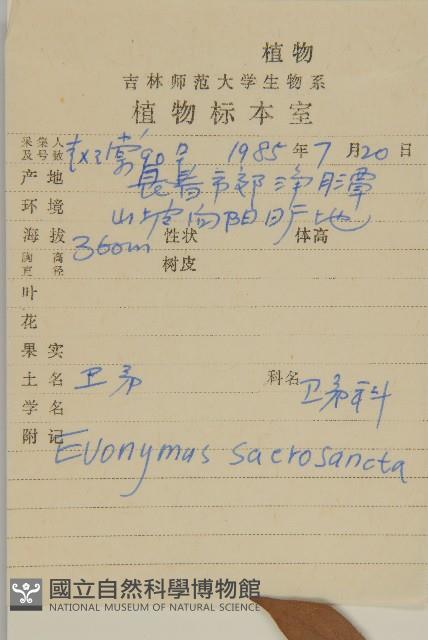 植物
吉林师范大学生物系
植物标本室
采集人及号数 90号 1985年7月20日
产地 長春市郊净月潭
环境 山坡向阳日户地
海拔 360m 性状 体高
胸高直径 树皮
叶
花
果实
土名 卫矛 科名 卫矛科
学名
附记 Evonymus sacrosancta
國立自然科學博物館
NATIONAL MUSEUM OF NATURAL SCIENCE